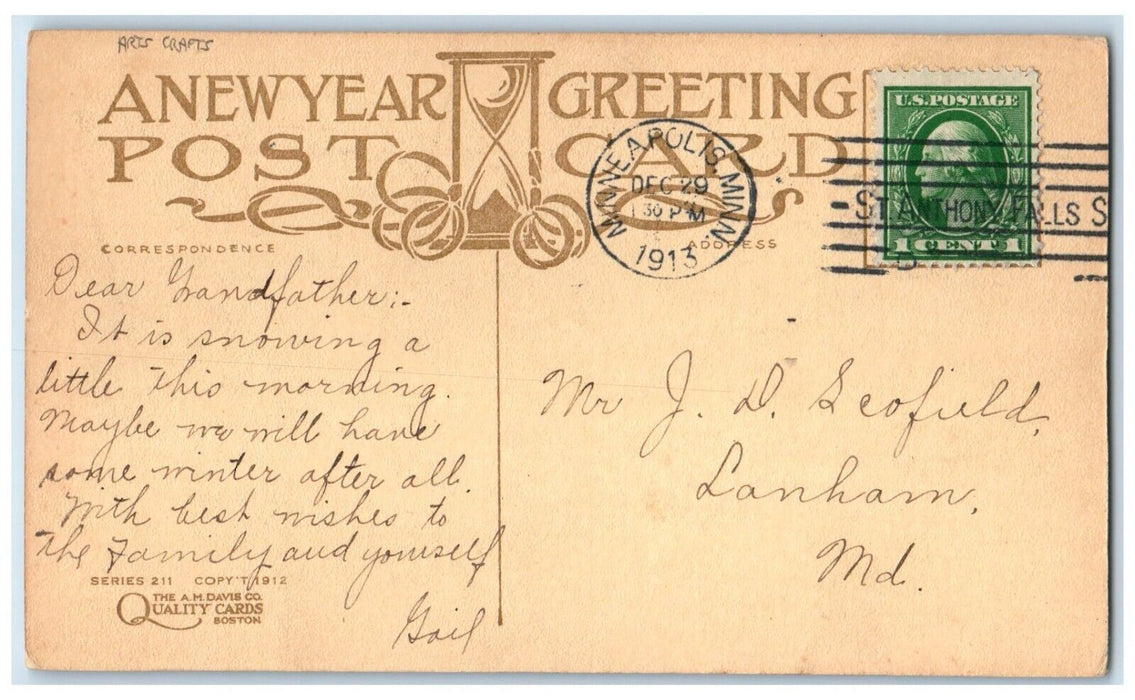 ARTS CRAFTS
A NEW YEAR GREETING
POST CARD
U.S. POSTAGE
1 CENT 1
MINNEAPOLIS, MINN.
DEC 29
1 30 P M
1913
ST ANTHONY FALLS S
CORRESPONDENCE
ADDRESS
Dear Grandfather:-
It is snowing a
little this morning.
Maybe we will have
some winter after all.
With best wishes to
the Family and yourself
Gail
Mr J. D. Scofield,
Lanham,
Md.
SERIES 211 COPY'T 1912
THE A.M. DAVIS CO.
QUALITY CARDS
BOSTON